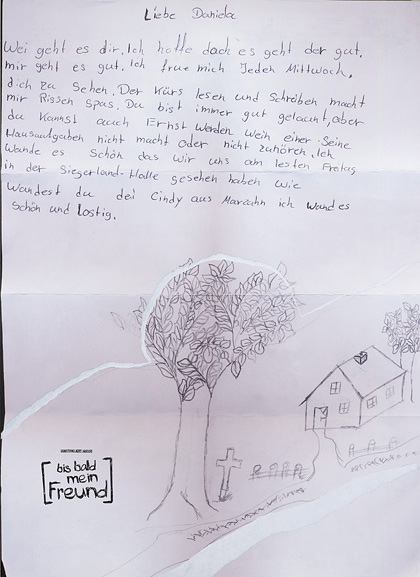 Liebe Daniela
Wei geht es dir. Ich hoffe doch es geht der gut.
mir geht es gut. Ich frue mich Jeden Mittwoch,
dich zu Sehen. Der Kürs lesen und Schreiben macht
mir Rissen Spas. Du bist immer gut gelaunt, aber
du kannst auch Ernst werden wein einer Seine
Hausaufgaben nicht macht oder nicht zuhören. Ich
Wande es Schön das wir uns am lesten Freitag
in der Siegerland-Halle gesehen haben wie
Wandest du dei Cindy aus Marzahn ich wand es
Schön und Lostig.
bis bald
mein
Freund